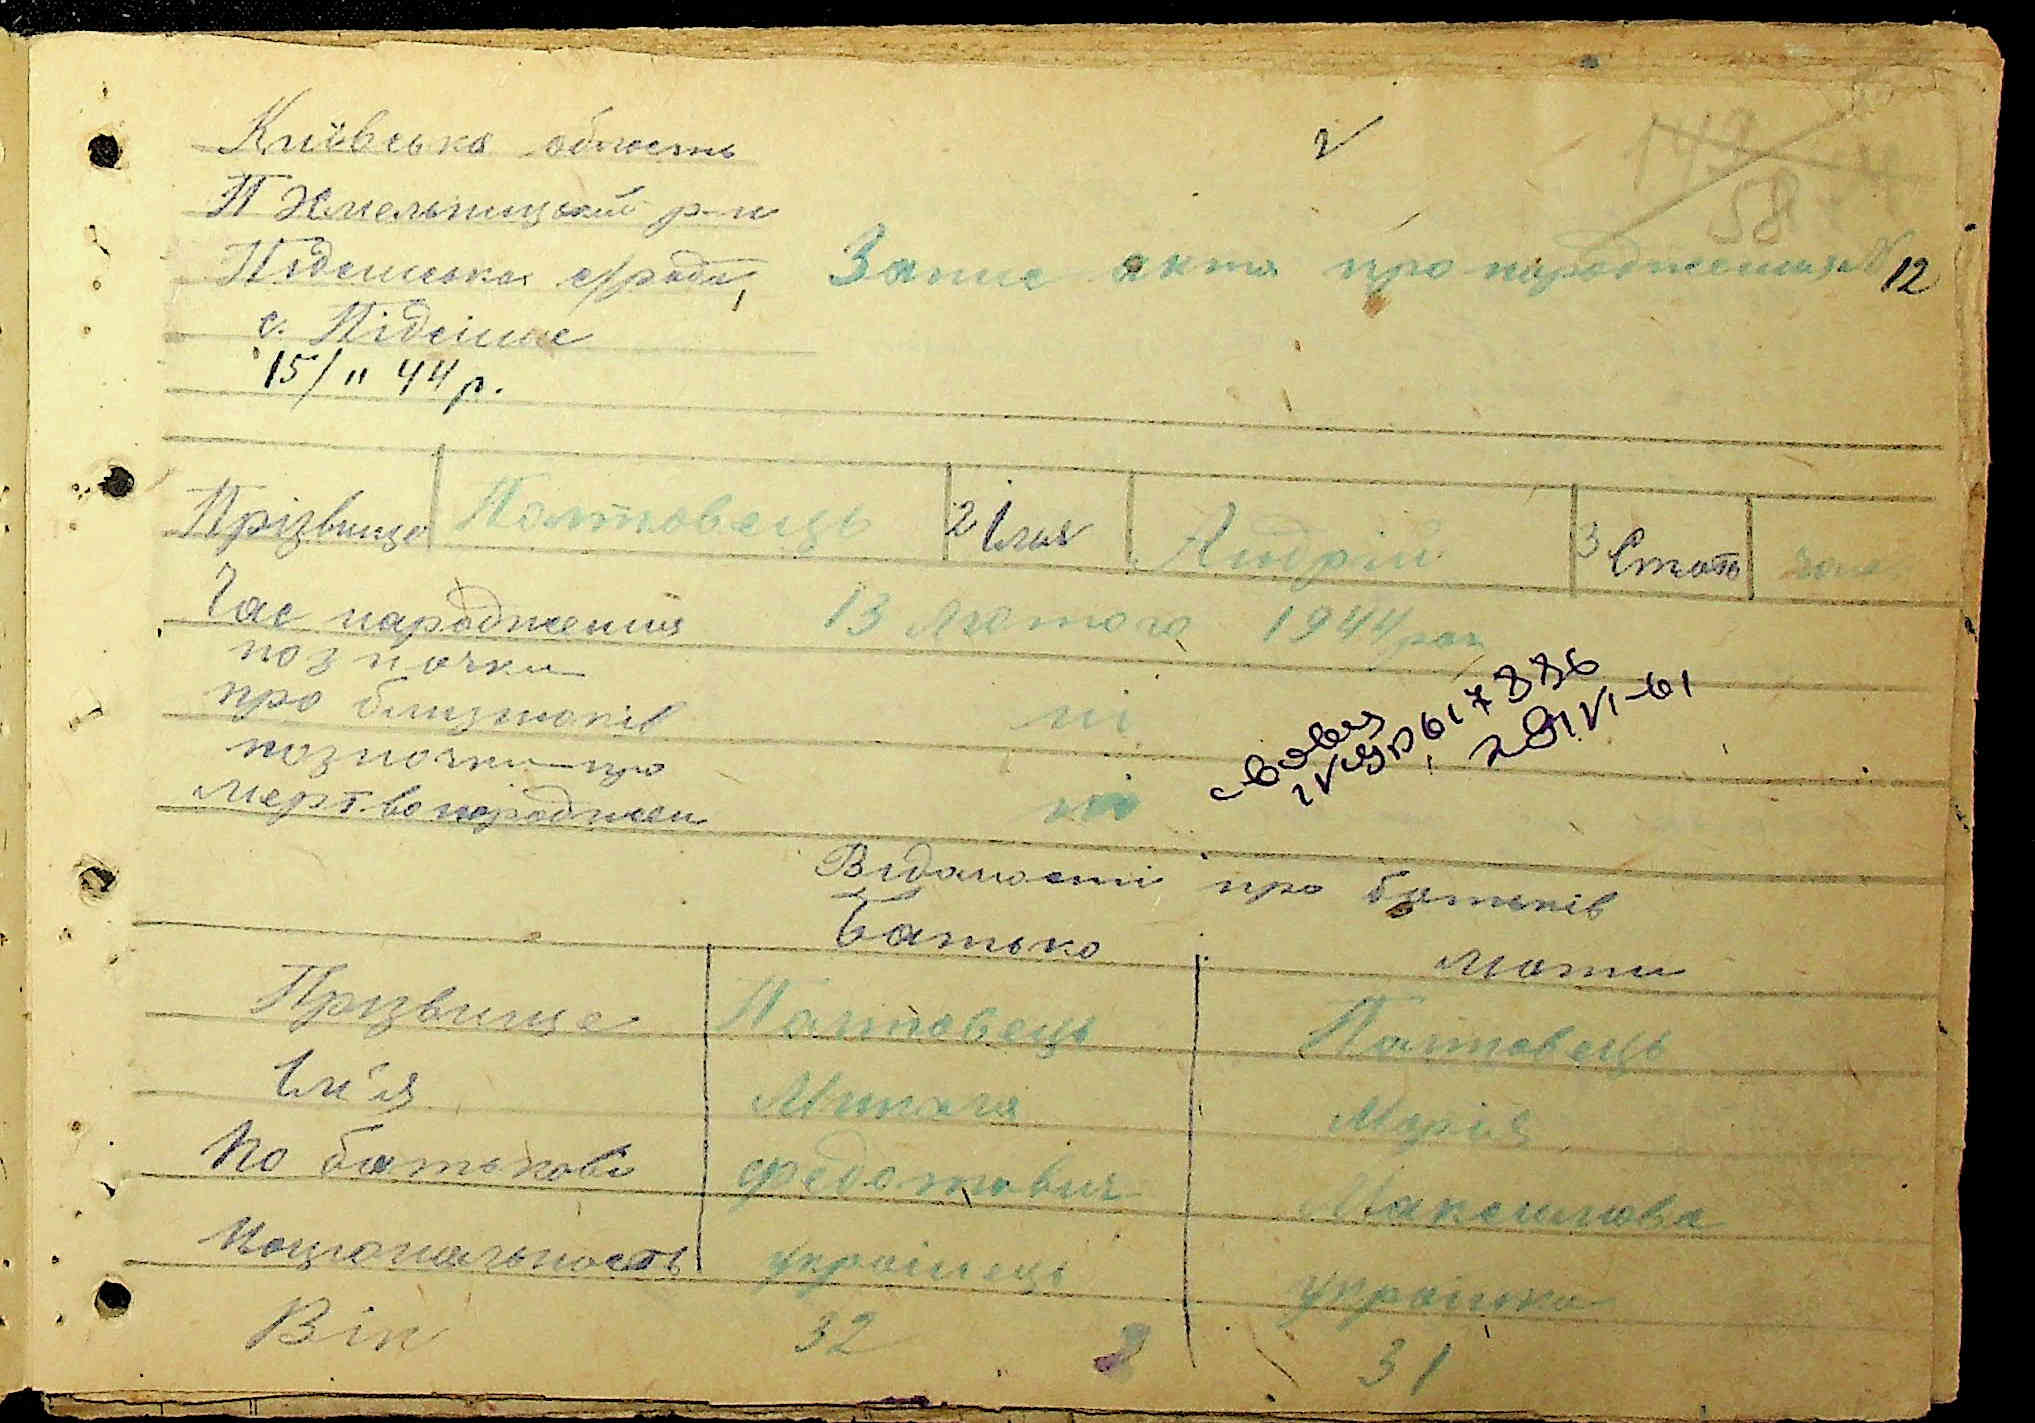 Київська область
П Хмельницький р-н
Підсинська с/рада,
с. Підсинне
15/II 44 р.
149
58
Запис акта про народження № 12
Прізвище Полтовець 2 Імя Андрій 3 Стать чол
Час народження 13 лютого 1944 рок
позначки
про близнюків ні
позначки про
мертвонароджен ні
617886
29/VI-61
Відомості про батьків
Батько Мати
Прізвище Полтовець Полтовець
Ім'я Микола Марія
По батькові Федотович Максимова
Національность українець українка
Вік 32 31